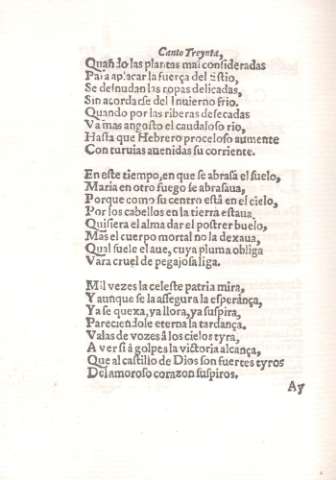 Canto Treynta,
Quando las plantas mal consideradas
Para aplacar la fuerça del Estio,
Se desnudan las ropas delicadas,
Sin acordarse del Inuierno frio.
Quando por las riberas desecadas
Va mas angosto el caudaloso rio,
Hasta que Hebrero proceloso aumente
Con turuias auenidas su corriente.
En este tiempo, en que se abrasa el suelo,
Maria en otro fuego se abrasaua,
Porque como su centro està en el cielo,
Por los cabellos en la tierra estaua
Quisiera el alma dar el postrer buelo,
Mas el cuerpo mortal no la dexaua,
Qual suele el aue, cuya pluma obliga
Vara cruel de pegajosa liga.
Mil vezes la celeste patria mira,
Y aunque se la assegura la esperança,
Ya se quexa, ya llora, ya suspira,
Pareciendole eterna la tardança.
Valas de vozes â los cielos tyra,
A ver si â golpes la victoria alcança,
Que al castillo de Dios son fuertes tyros
Del amoroso corazon suspiros.
Ay